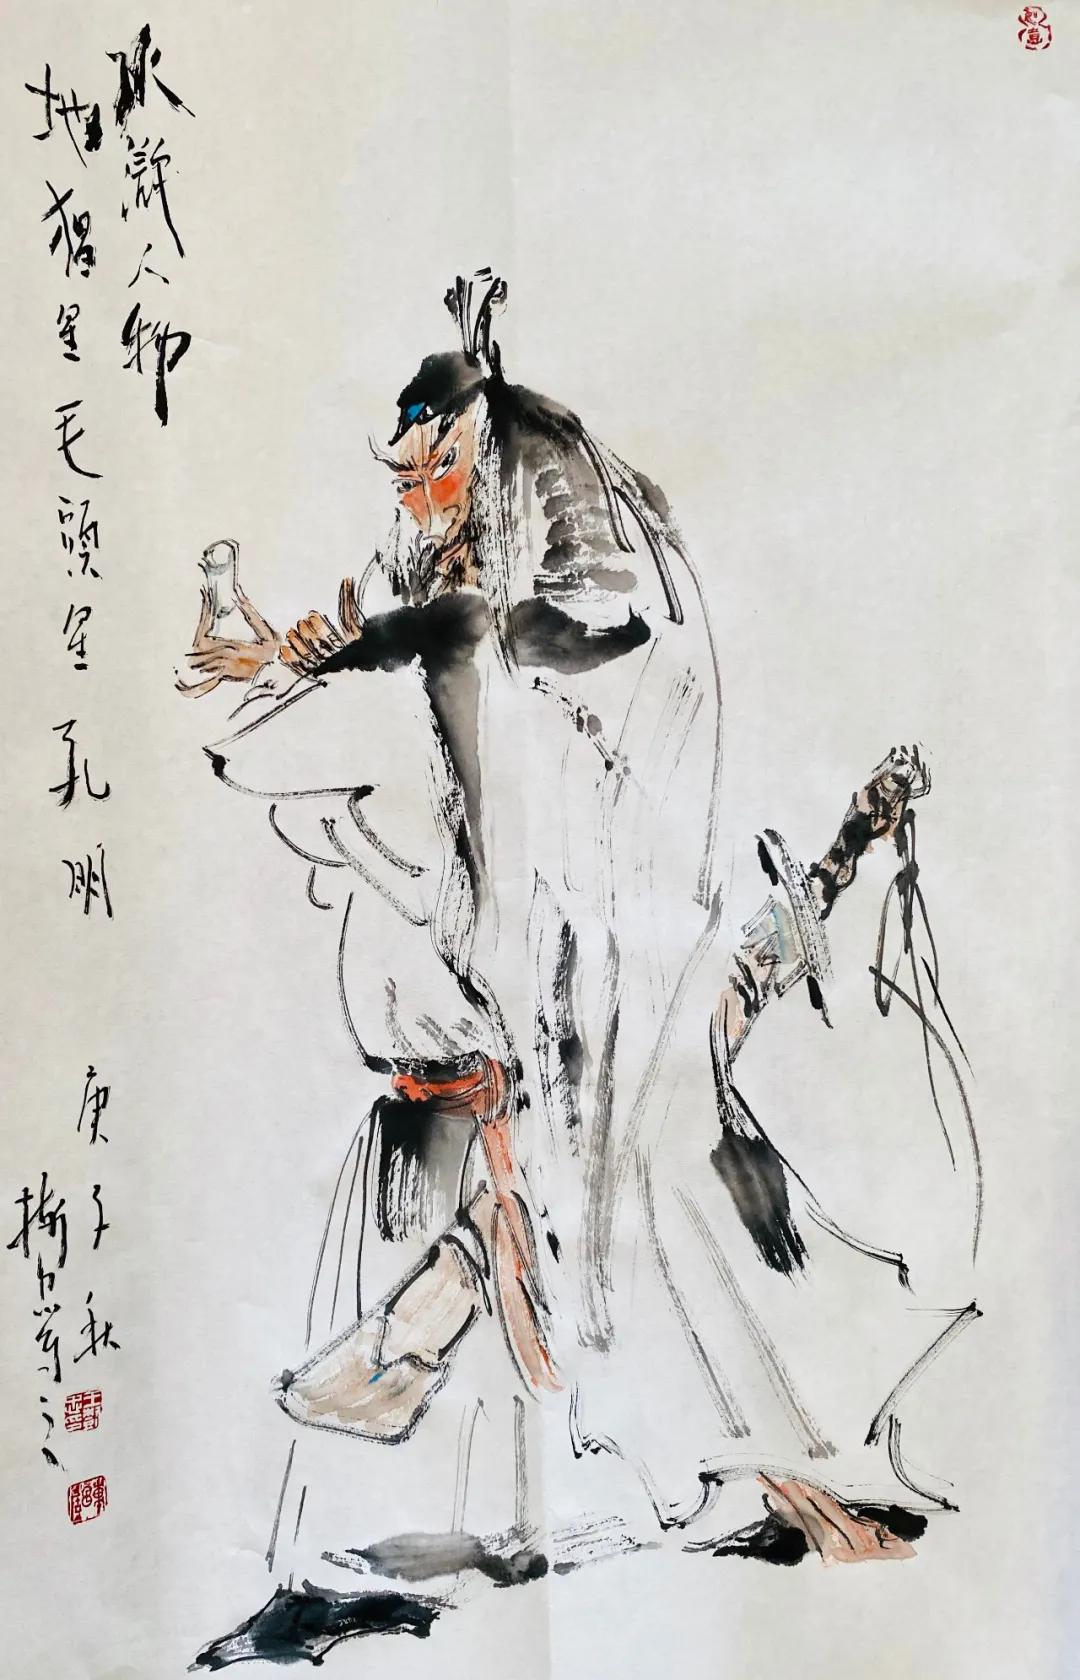 水滸人物
地猖星毛頭星孔明
庚子秋